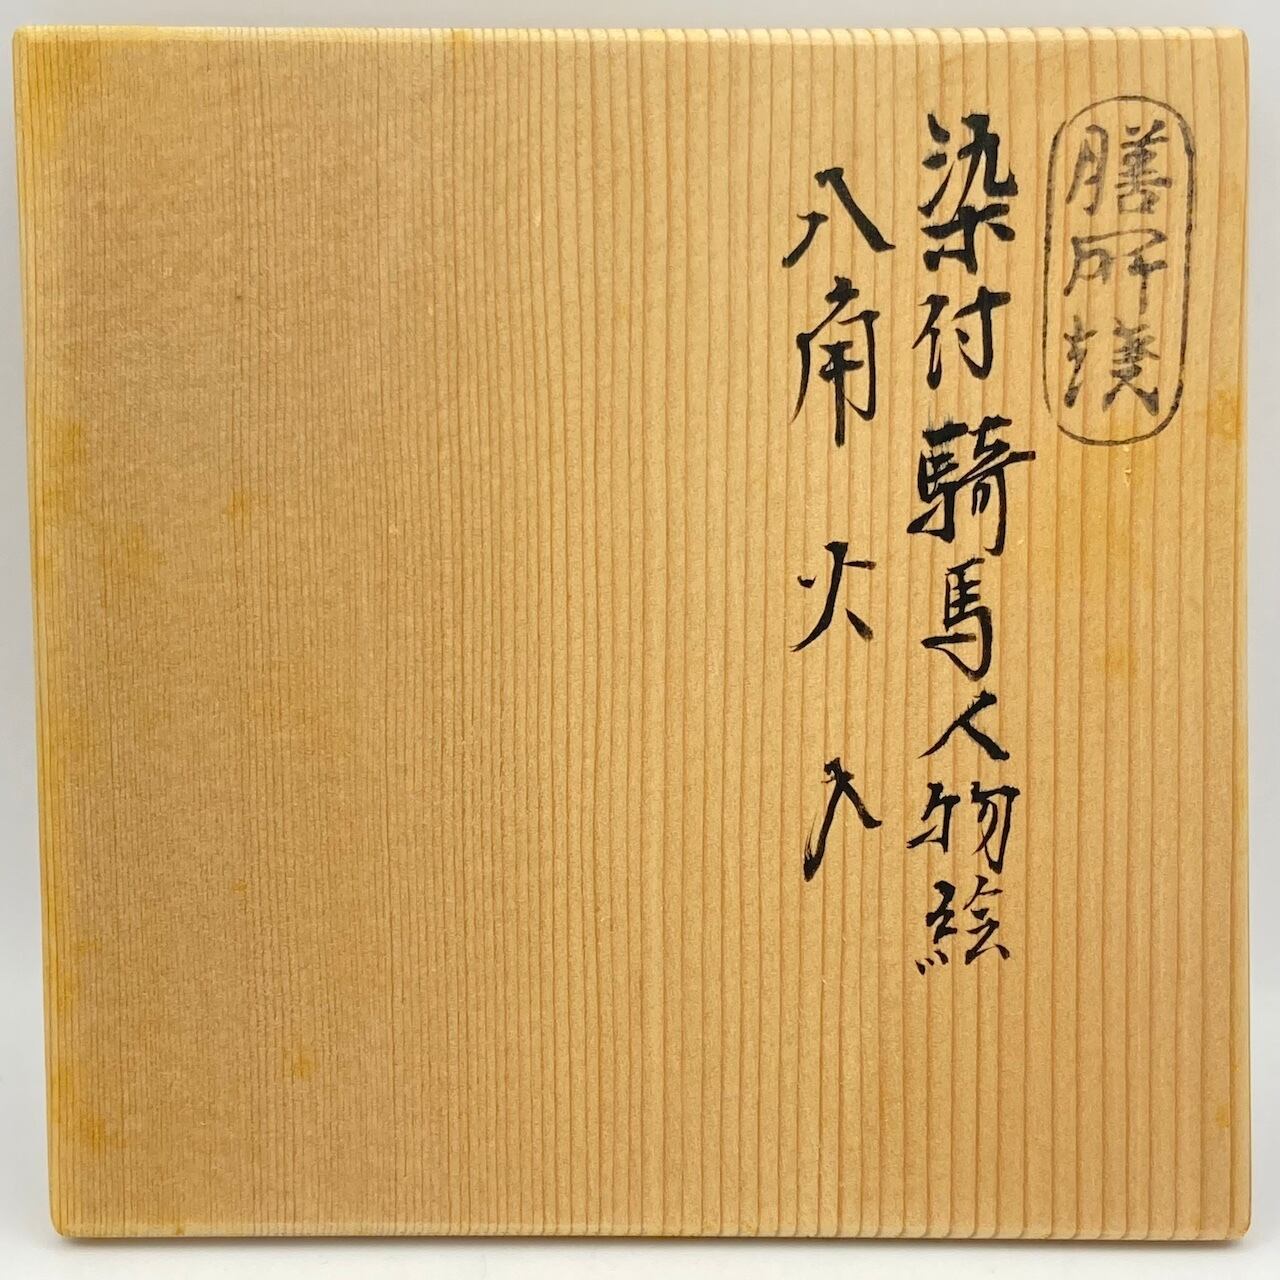 膳所焼
染付騎馬人物絵
八角火入